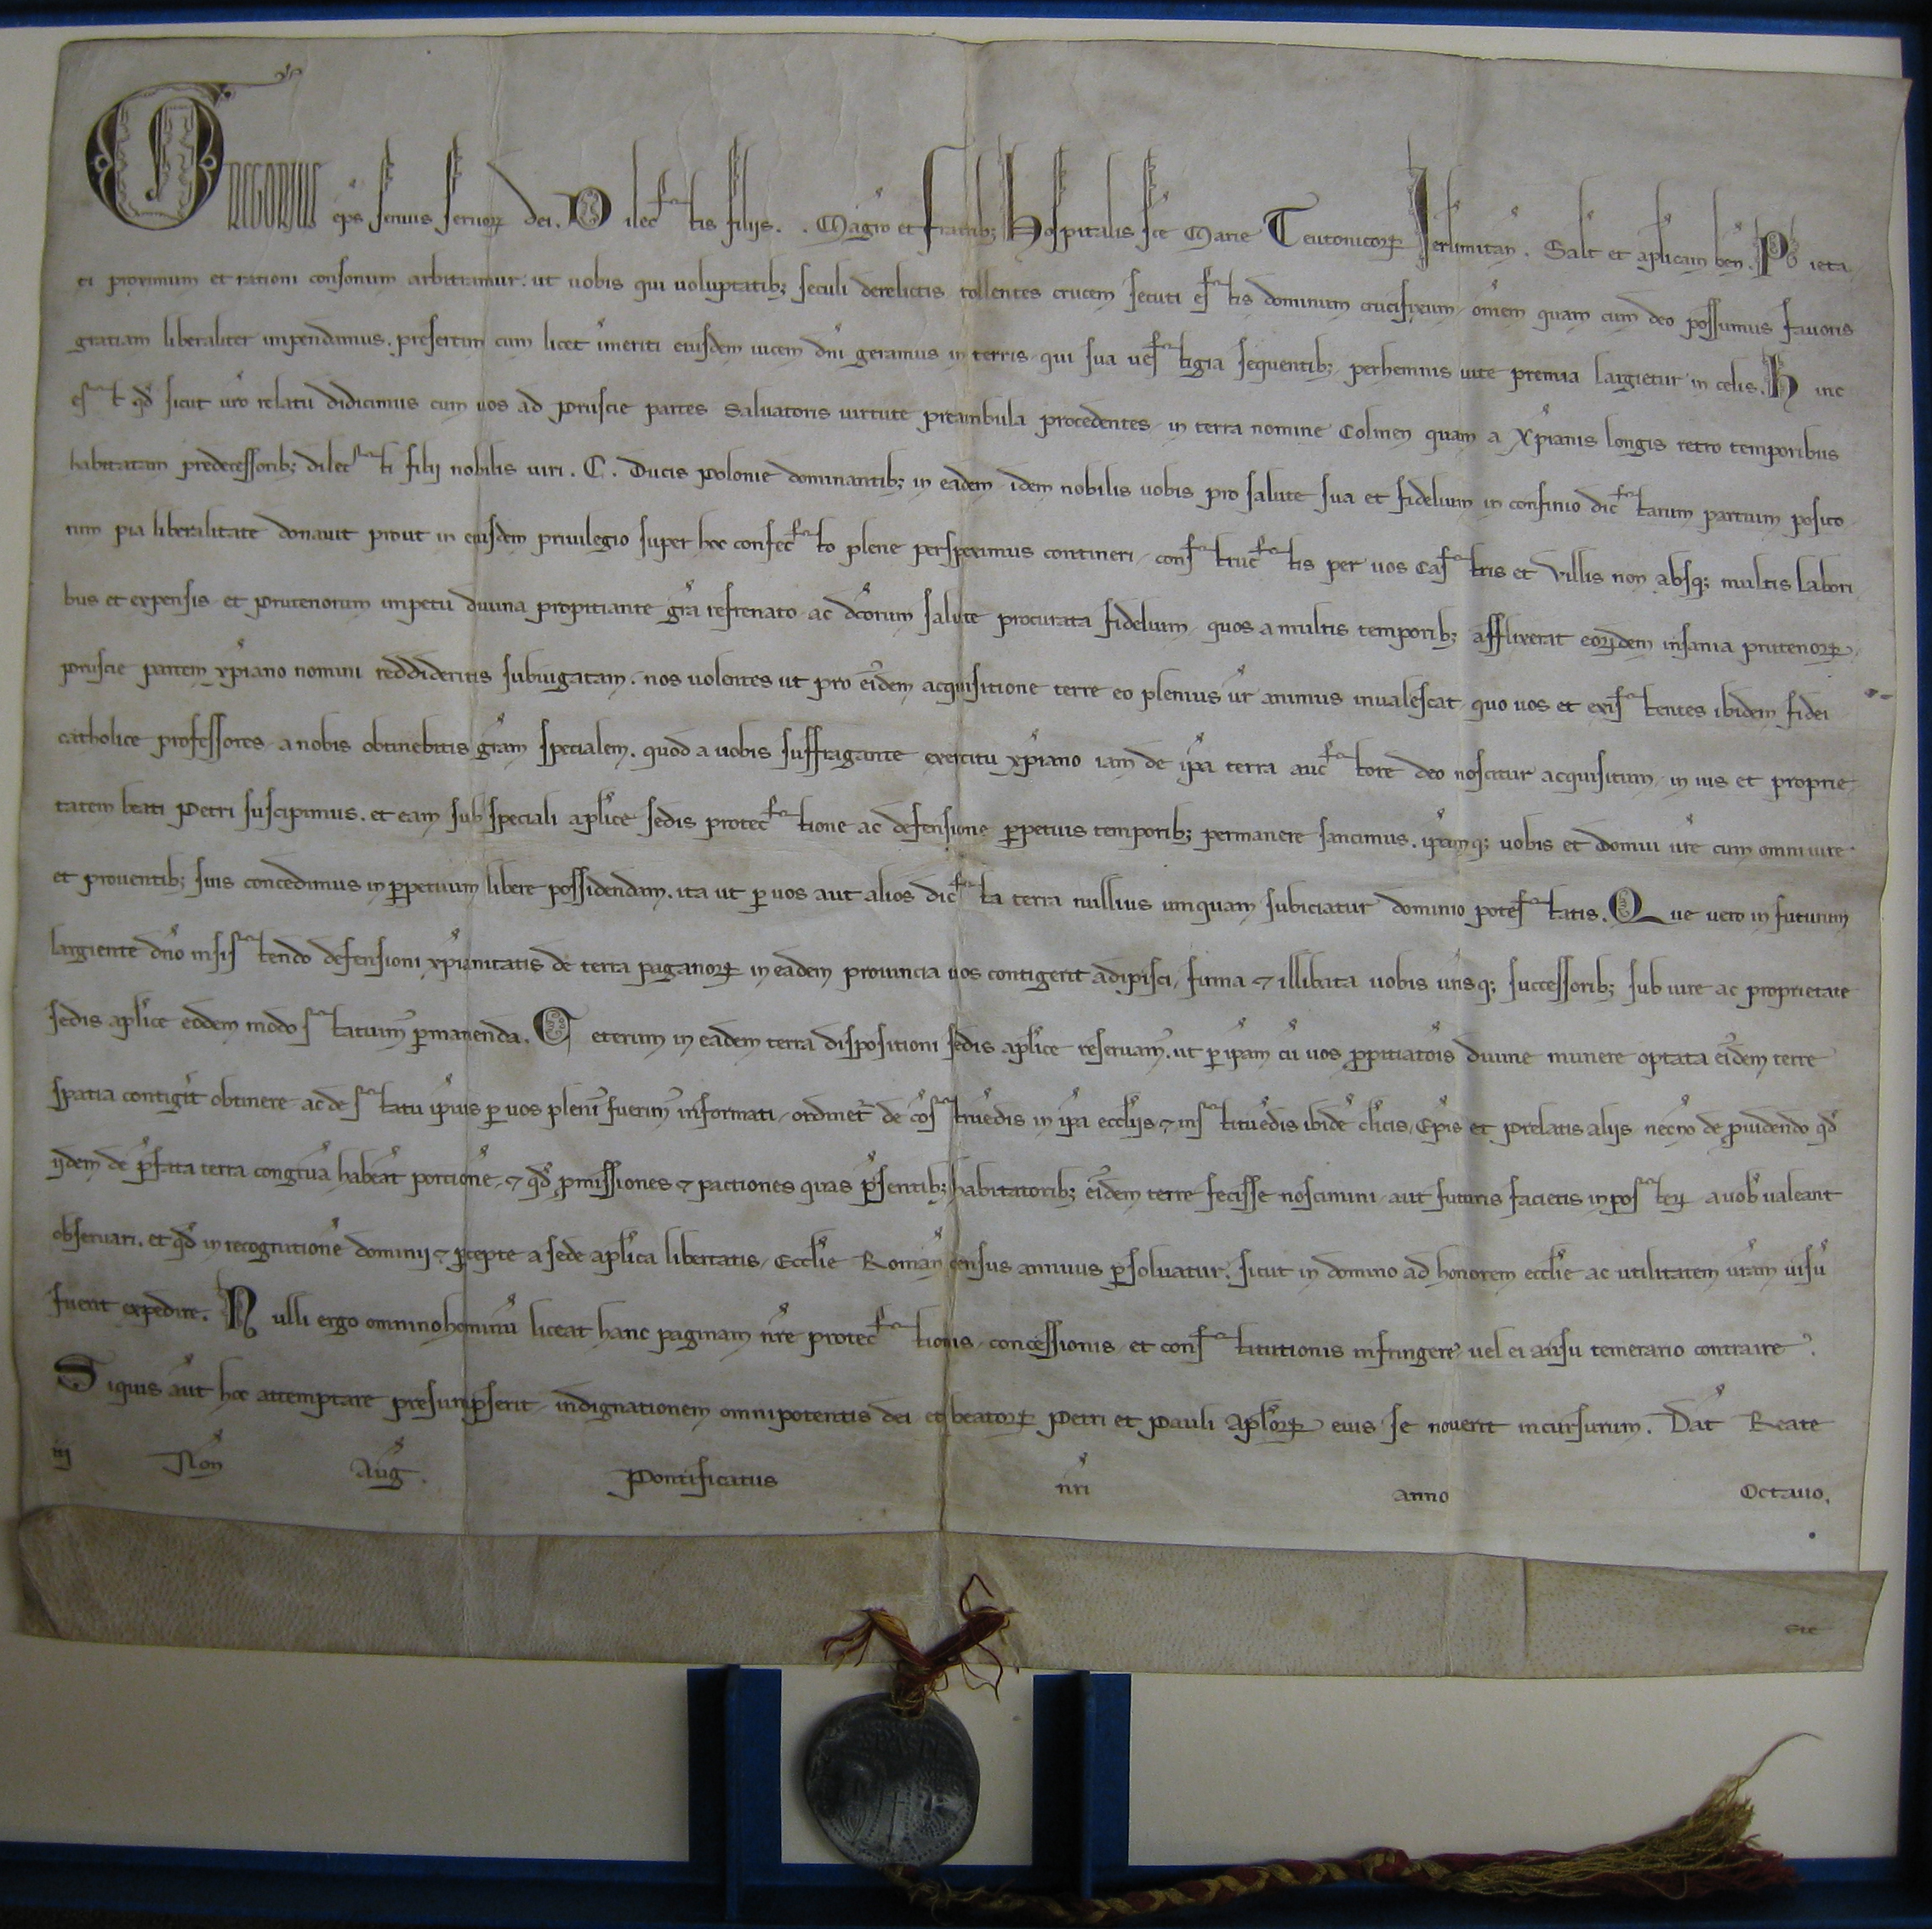 GREGORIUS ep̄s seruus seruoꝝ dei. Dilectis filijs. . Mag̃ro et fratrib; Hospitalis sc̄e Marie Teutonicoꝝ Ierl̃imitan̄. Salt̃ et ap̄licam ben̄. Pieta
ti proximum et rationi consonum arbitramur. ut uobis qui uoluptatib; seculi derelictis tollentes crucem secuti estis dominum crucifixum, om̄em quam cum deo possumus fauoris
gratiam liberaliter impendamus. presertim cum licet im̄eriti eiusdem uicem dn̄i geramus in terris, qui sua uestigia sequentib; perhennis uite premia largietur in celis. Hinc
est qd̄ sicut ur̄o relatu didicimus cum uos ad Pruscie partes Saluatoris uirtute preambula procedentes, in terra nomine Colmen quam a Xp̄ianis longis retro temporibus
habitatam predecessorib; dilecti filij nobilis uiri . C . Ducis Polonie dominantib; in eadem, idem nobilis uobis pro salute sua et fidelium in confinio dictarum partium posito
rum pia liberalitate donauit prout in eiusdem priuilegio super hoc confecto plene perspeximus contineri, constructis per uos Castris et Villis non absq; multis labori
bus et expensis, et Prutenorum impetu diuina propitiante gr̄a refrenato, ac dc̄orum salute procurata fidelium, quos a multis temporib; afflixerat eorundem insania prutenoꝝ,
Pruscie partem xp̄iano nomini reddideritis subiugatam. nos uolentes ut pro eiusdem acquisitione terre eo plenius ur̄ animus inualescat, quo uos et existentes ibidem fidei
catholice professores, a nobis obtinebitis gr̄am specialem. quod a uobis suffragante exercitu xp̄iano iam de ip̄a terra auctore deo noscitur acquisitum, in ius et proprie
tatem beati Petri suscipimus. et eam sub speciali aplice sedis protectione ac defensione ꝑpetuis temporib; permanere sancimus. ip̄amq; uobis et domui ur̄e cum omni iure
et prouentib; suis concedimus in ꝑpetuum libere possidendam. ita ut ꝑ uos aut alios dicta terra nullius umquam subiciatur dominio potestatis. Que uero in futurum
largiente dn̄o insistendo defensioni xp̄ianitatis de terra paganoꝝ in eadem prouincia uos contigerit adipisci, firma ⁊ illibata uobis ur̄isq; successorib; sub iure ac proprietate
sedis aplice eodem modo statuim᷒ ꝑmanenda. Ceterum in eadem terra dispositioni sedis aplice reseruam᷒. ut ꝑ ip̄am cū uos ꝓpitiatōis diuine munere optata eiusdem terre
spatia contigit̄ obtinere, ac de statu ip̄ius ꝑ uos pleni᷒ fuerim᷒ informati, ordinet᷒ de cōstruēdis in ip̄a eccl̄ijs ⁊ instituēdis ibidē cl̄icis, Ep̄is et Prelatis alijs necn̄o de ꝓuidendo qd̄
ijdem de p̄fata terra congruā habeāt portionē, ⁊ qd̄ ꝓmissiones ⁊ pactiones quas p̄sentib; habitatorib; eiusdem terre fecisse noscimini, aut futuris facietis in posterū a uob̄ ualeant
obseruari. et qd̄ in recognitionē dominij ⁊ ꝑcepte a sede aplica libertatis, Eccl̄ie Roman̄ census annuus ꝑsoluatur. sicut in domino ad honorem eccl̄ie ac utilitatem ur̄am uisū
fuerit expedire. Nulli ergo omnino hominū liceat hanc paginam nr̄e protectionis, concessionis, et constitutionis infringere, uel ei ausu temerario contraire.
Siquis aūt hoc attemptare presumpserit, indignationem omnipotentis dei et beatoꝝ Petri et Pauli Aploꝝ eius se nouerit incursurum. Dat̄ Reate
iij Non̄ Aug̃. Pontificatus nr̄i anno Octauo.